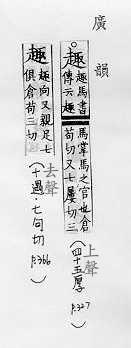 廣韻
趣 趣馬書
傳云趣
馬掌馬之官也倉
苟切又七屢切三
上聲
(四十五厚 p.327)
趣 趣向又親足七
俱倉苟三切
去聲
(十遇·七句切 p.366)